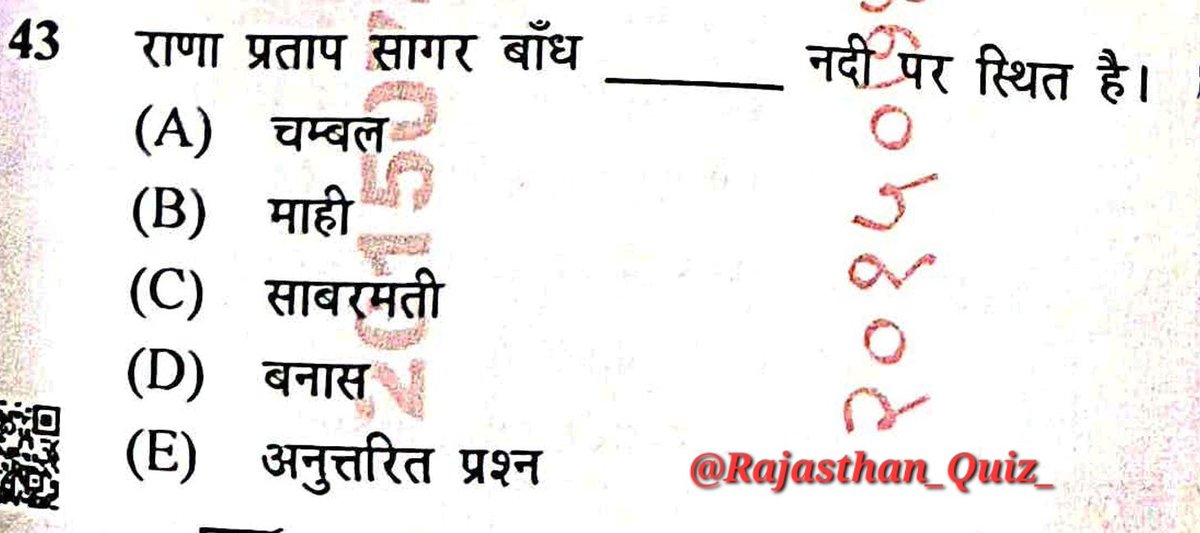 43 राणा प्रताप सागर बाँध ______ नदी पर स्थित है।
(A) चम्बल
(B) माही
(C) साबरमती
(D) बनास
(E) अनुत्तरित प्रश्न
@Rajasthan_Quiz_